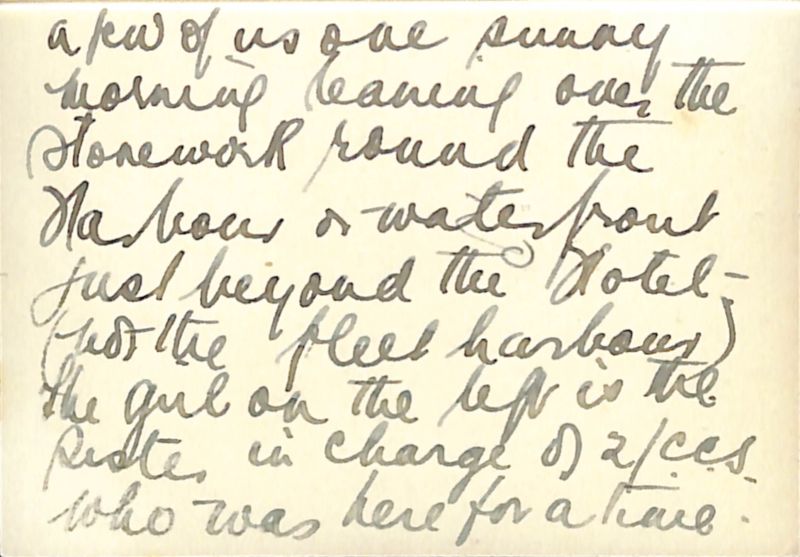 a few of us one sunny
morning leaning over the
stonework round the
Harbour or waterfront
just beyond the Hotel -
(not the fleet harbour)
The girl on the left is the
Sister in charge of 2/CCS
who was here for a time.